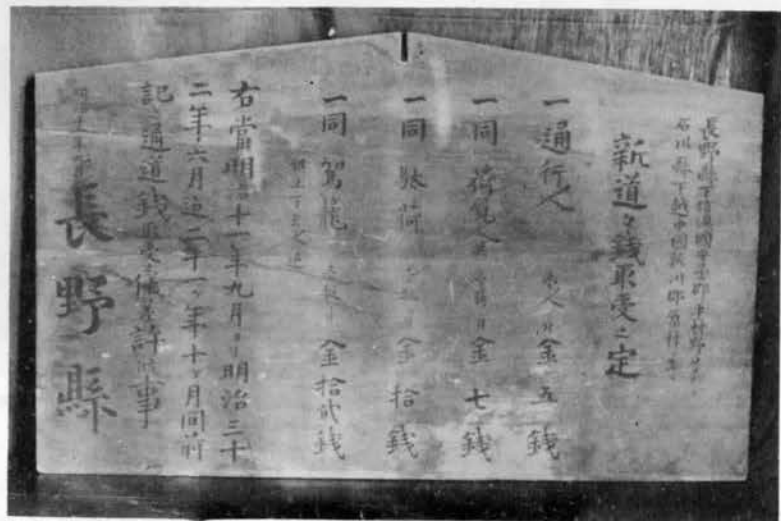 長野縣下信濃國安曇郡平村野口ヨリ
石川縣下越中國新川郡原村ニ至ル
新道々錢取受之定
一通行人 壱人ニ付 金五錢
一同 荷負人 金七錢
一同 駄荷 金拾錢
一同 駕籠 金拾貳錢
右當明治十一年九月ヨリ明治三十
二年六月迠二十一ヶ年十ヶ月間前
記之通道錢取受之儀差許候事
長野縣